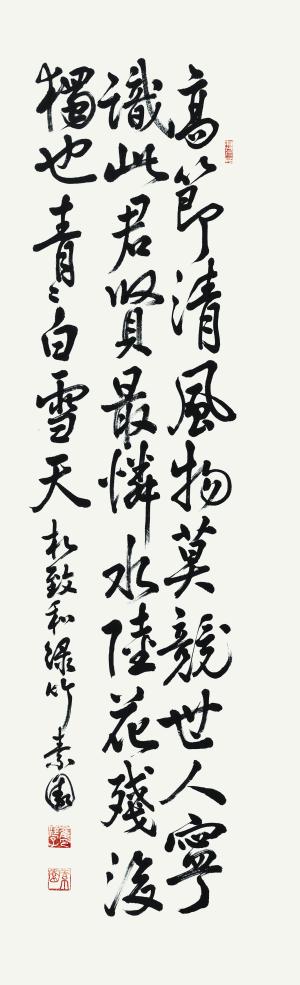 高節清風物莫競世人寧
識此君賢最憐水陸花殘後
獨也青〻白雪天 朴致和綠竹 素園